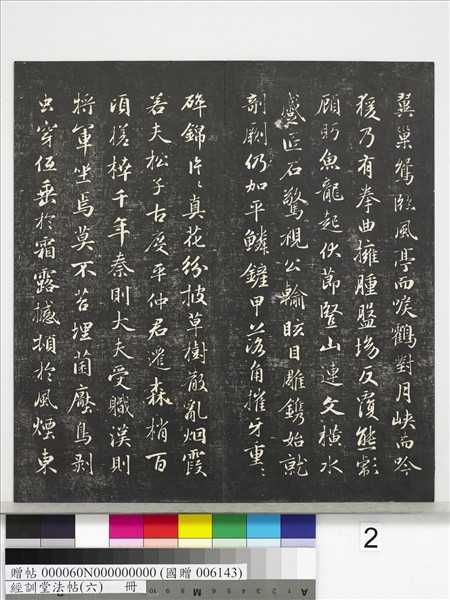 翼巢鴛臨風亭而唳鶴對月峽而吟
猨乃有拳曲擁腫盤坳反覆熊彪
顧盻魚龍起伏節豎山連文橫水
蹙匠石驚視公輸眩目雕鐫始就
剞劂仍加平鱗鏟甲落角摧牙重〻
碎錦片〻真花紛披草樹散亂烟霞
若夫松子古度平仲君遷森梢百
頃槎枿千年秦則大夫受職漢則
將軍坐焉莫不苔埋菌壓鳥剝
虫穿低垂於霜露撼頓於風煙東
2
贈帖 000060N000000000 (國贈 006143)
經訓堂法帖(六) 冊